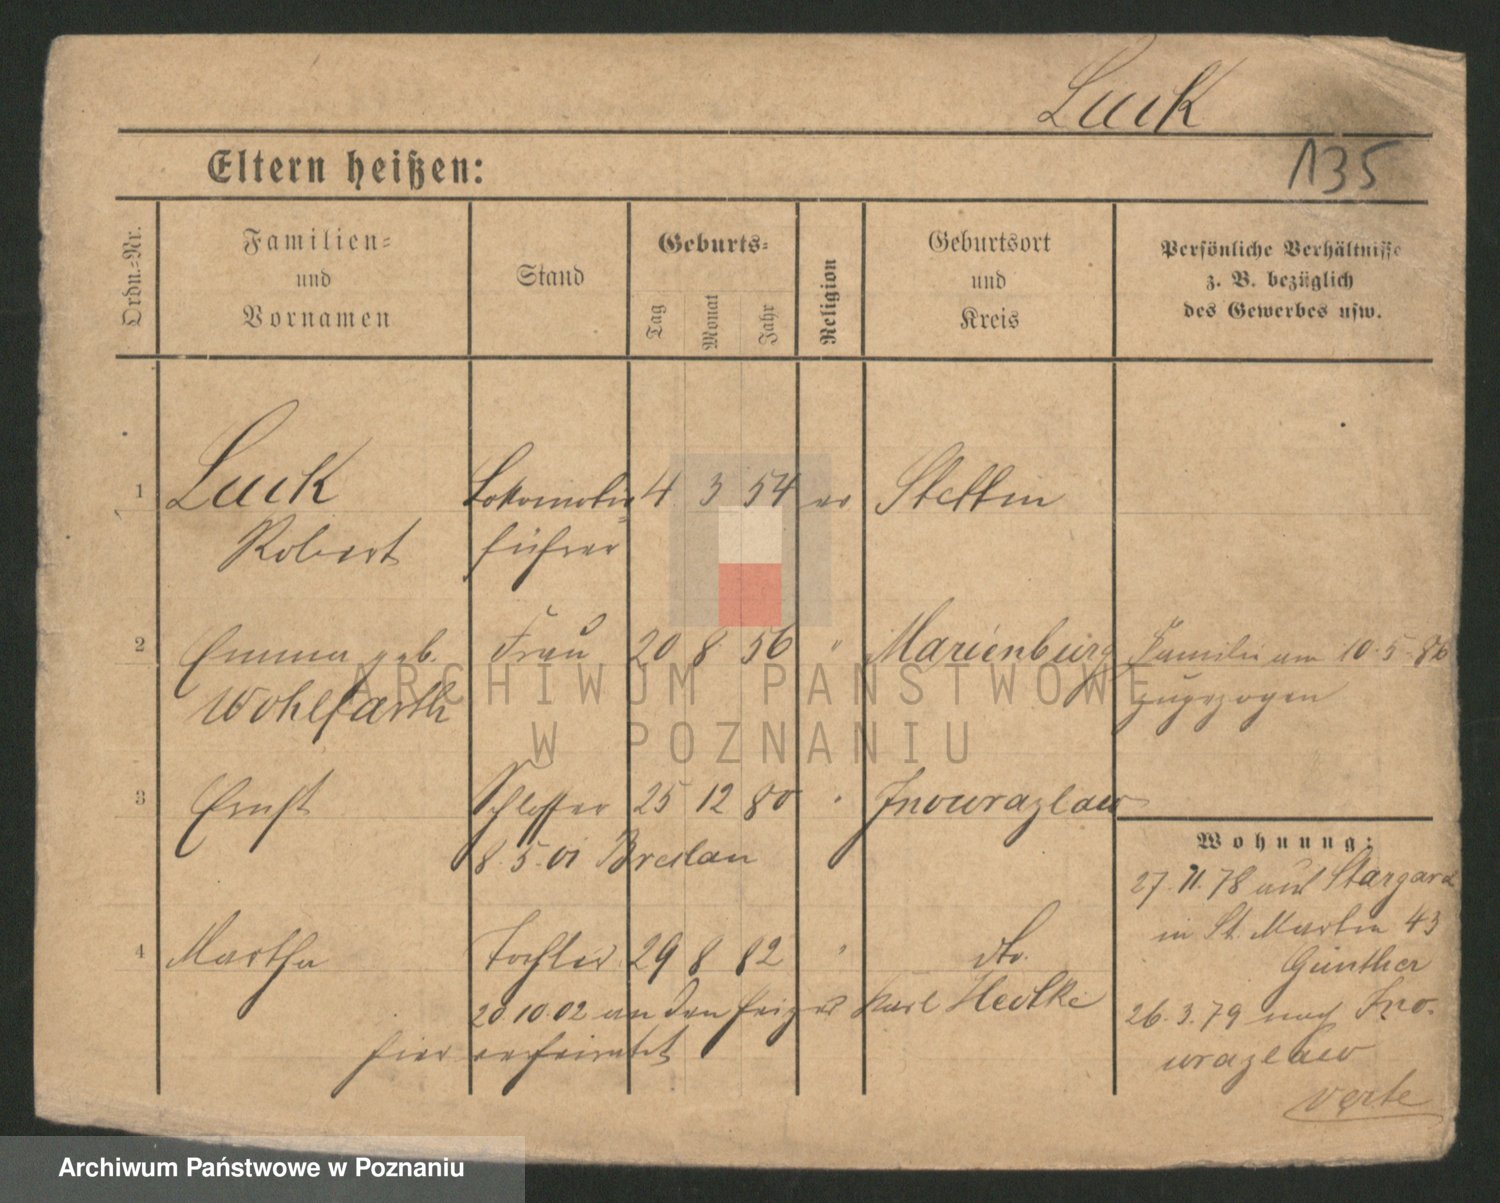 Luck
Eltern heißen:
135
Ordn.-Nr.
Familien-
und
Vornamen
Stand
Geburts-
Tag
Monat
Jahr
Religion
Geburtsort
und
Kreis
Persönliche Verhältnisse
z. B. bezüglich
des Gewerbes usw.
1 Luck Lokomotiv 4 3 54 ev Stettin
Robert führer
2 Emma geb. Frau 20 8 56 " Marienburg Familie am 10.5.86
Wohlfarth zugezogen
3 Ernst Schlosser 25 12 80 " Inowrazlaw
8.5.01 Breslau
Wohnung:
27.11.78 aus Stargard
in St. Martin 43
Günther
26.3.79 nach Ino-
wrazlaw
verte
4 Martha Tochter 29 8 82 " dto.
20.10.02 an den Karl Hedtke
hier verheiratet
ARCHIWUM PAŃSTWOWE
W POZNANIU
Archiwum Państwowe w Poznaniu